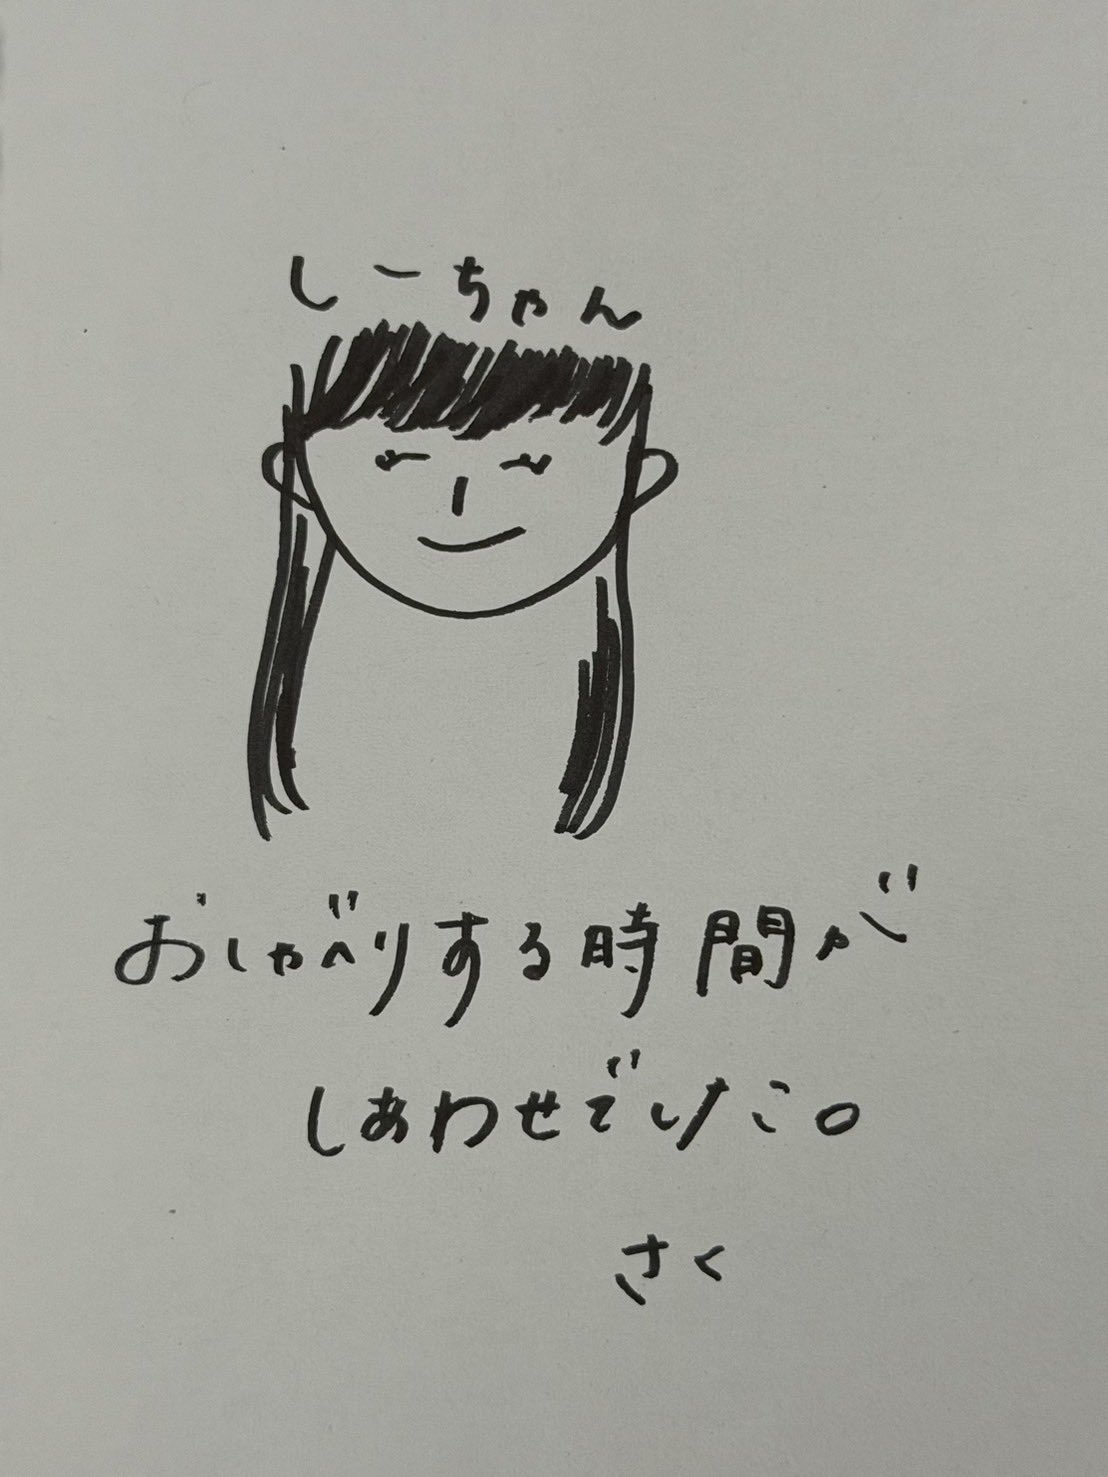 しーちゃん
おしゃべりする時間が
しあわせでした。
さく